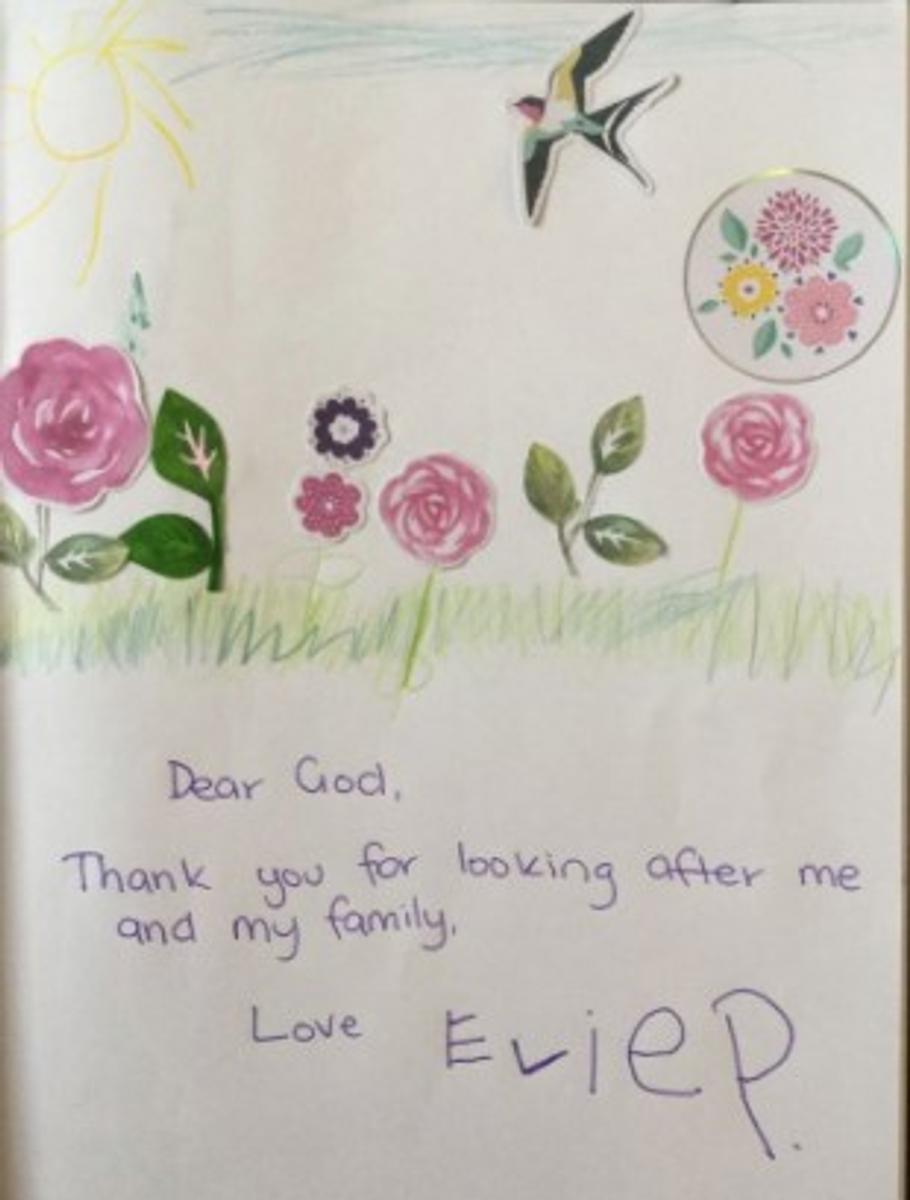 Dear God,
Thank you for looking after me
and my family.
Love Evie P.